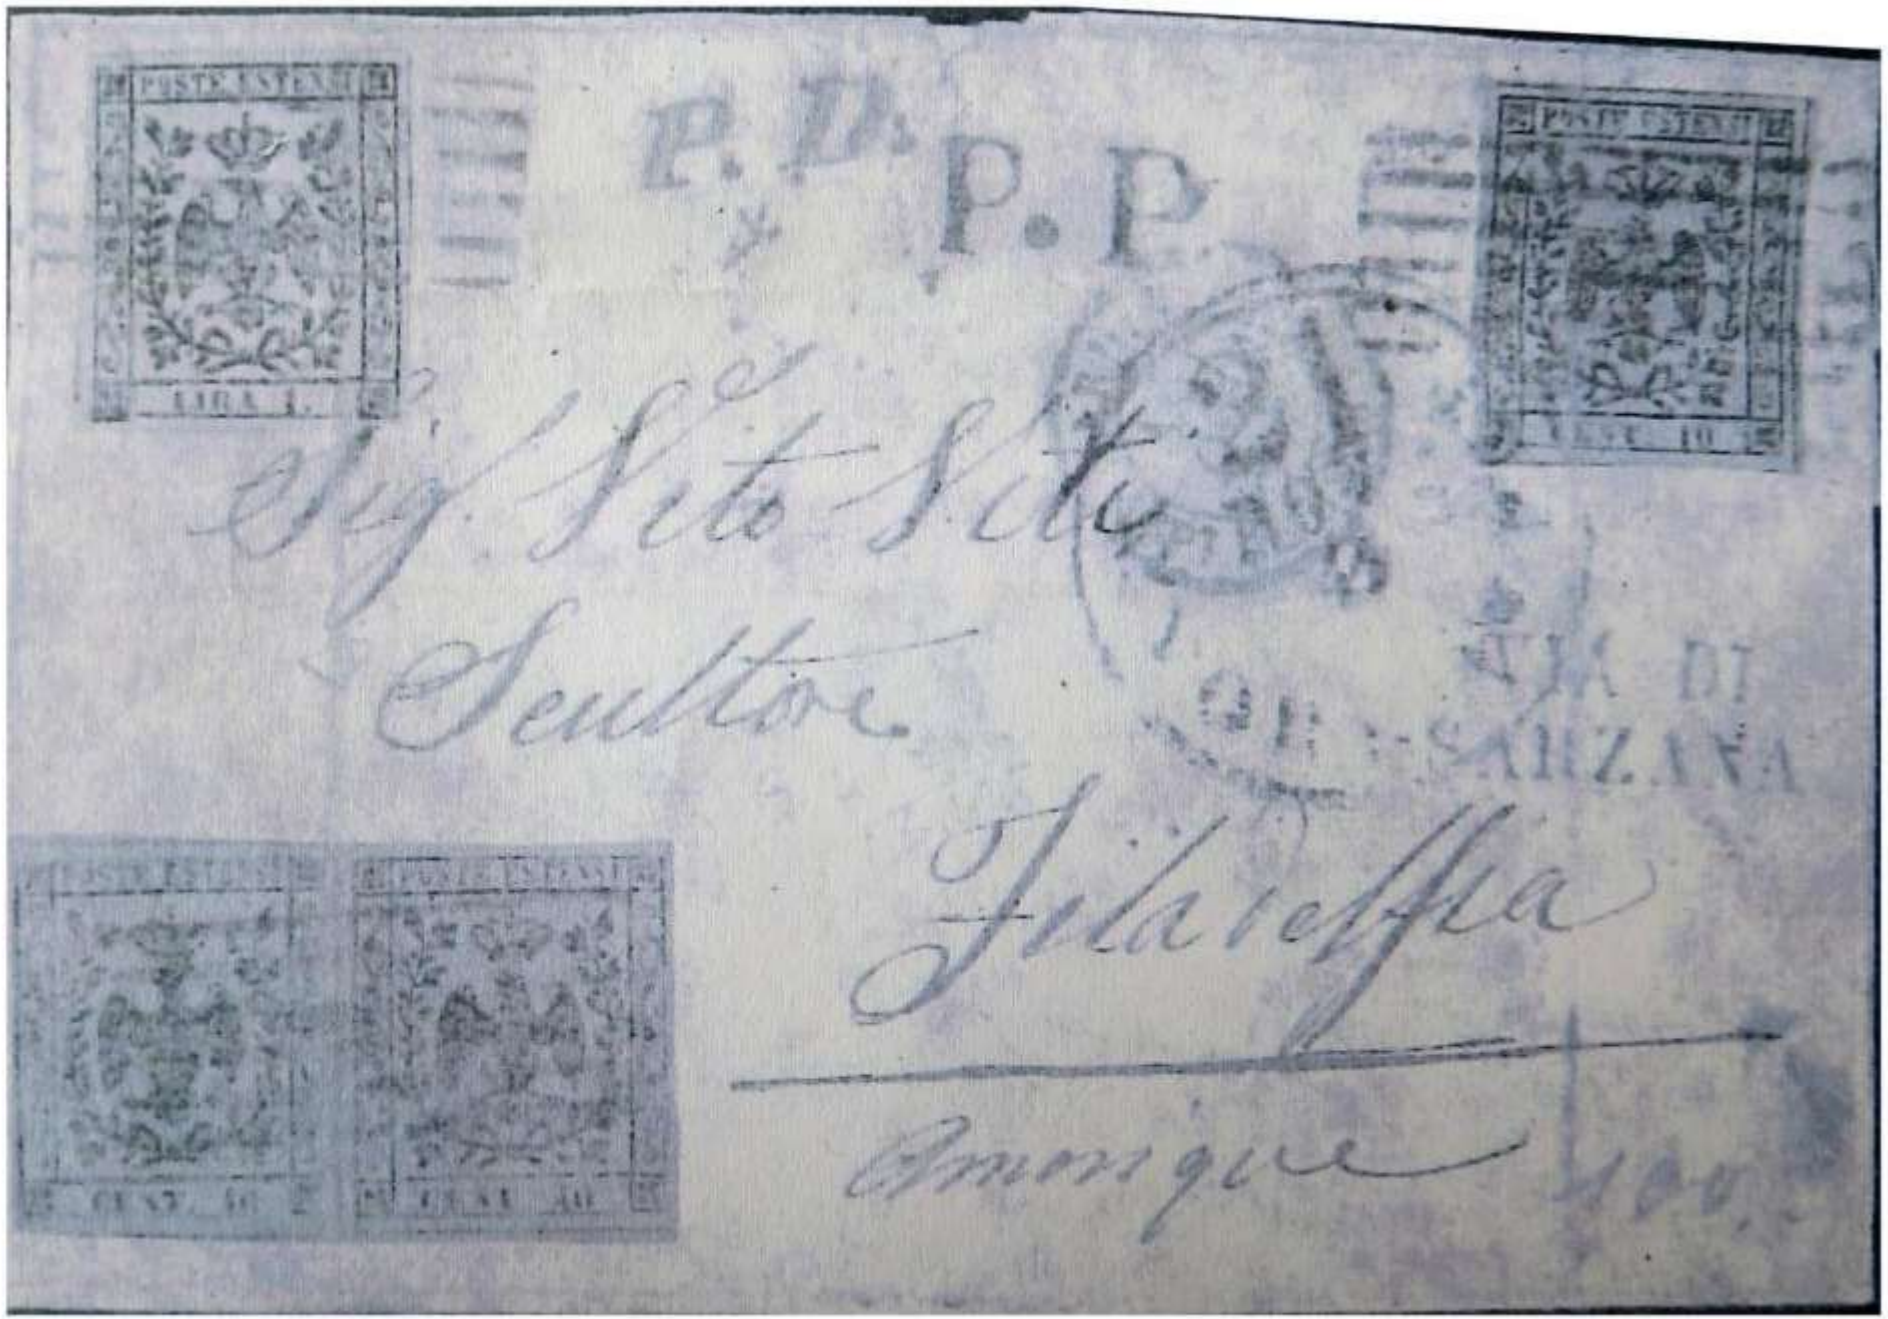 POSTE ESTENSI
LIRA 1.
P.D.
P.P
POSTE ESTENSI
CENT. 10
Sig.r Vito Viti
Scultore
VIA DI
SARZANA
Filadelfia
Amerique
POSTE ESTENSI
CENT.
POSTE ESTENSI
CENT. 40